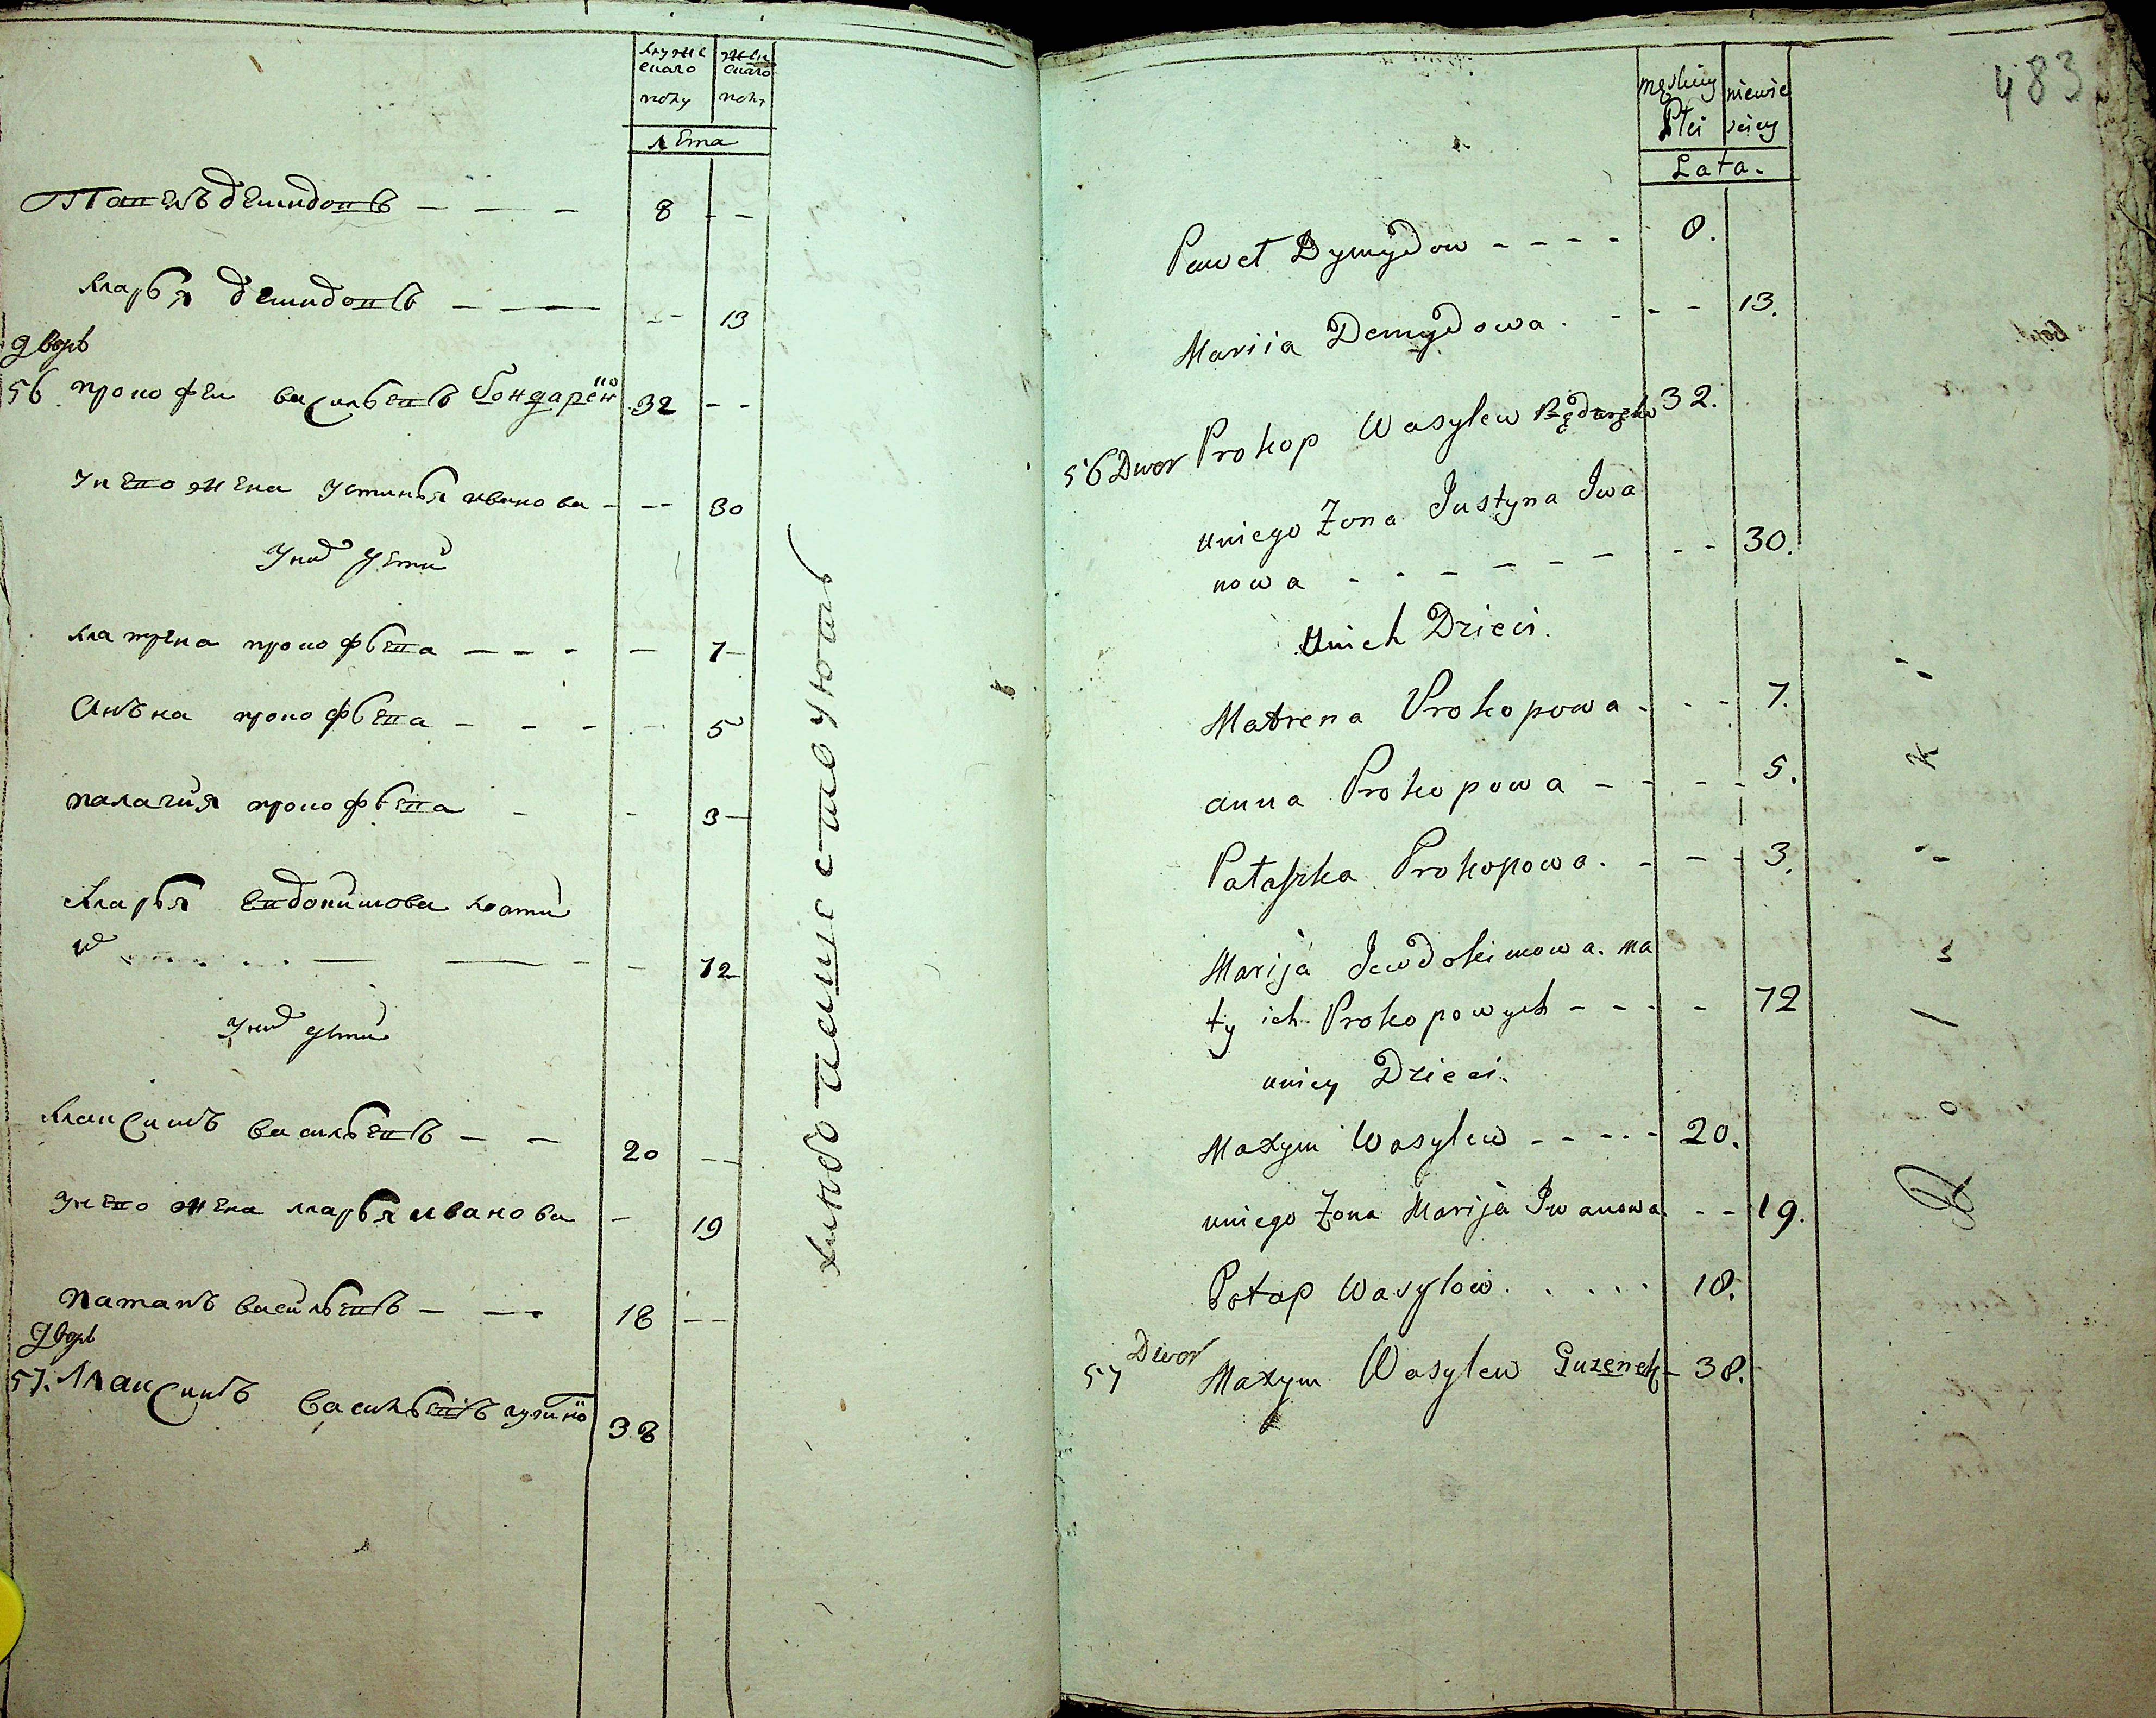 мужескаго полу
женскаго полу
лета
Павелъ демидовъ — — — 8 - -
Марья демидовъ — — — - - 13
дворъ
56 прокофеи васильевъ бондаренко 32 - -
у него жена устинья иванова - - - 30
у них дети
матрена прокофьева — - - - 7
Анъна прокофьева - - - - 5
палагия прокофьева - - 3
Марья евдокимова мати
их — — - - 72
у них дети
Максимъ васильевъ — — 20 - -
у него жена марья иванова - 19
патапъ васильевъ — — 18 - -
дворъ
57. Максимъ васильевъ 38
męskiey Płci
niewieściey
Lata.
483
Paweł Dymydow - - - - 8.
Mariia Demydowa. - - - 13.
56 Dwor Prokop Wasylew 32.
uniego Żona Justyna Iwa
nowa - - - - - - - - 30.
Unich Dzieci.
Matrena Prokopowa - - - 7.
anna Prokopowa - - - - 5.
Pałaszka Prokopowa. - - - 3.
Marija Jewdokimowa. ma
ty ich Prokopowych - - - - 72
uniey Dzieci.
Maxym Wasylew - - - - - 20.
uniego Żona Marija Iwanowa. - - 19.
Potap Wasylow. . . . . 18.
57 Dwor Maxym Wasylew Guzenek - 38.